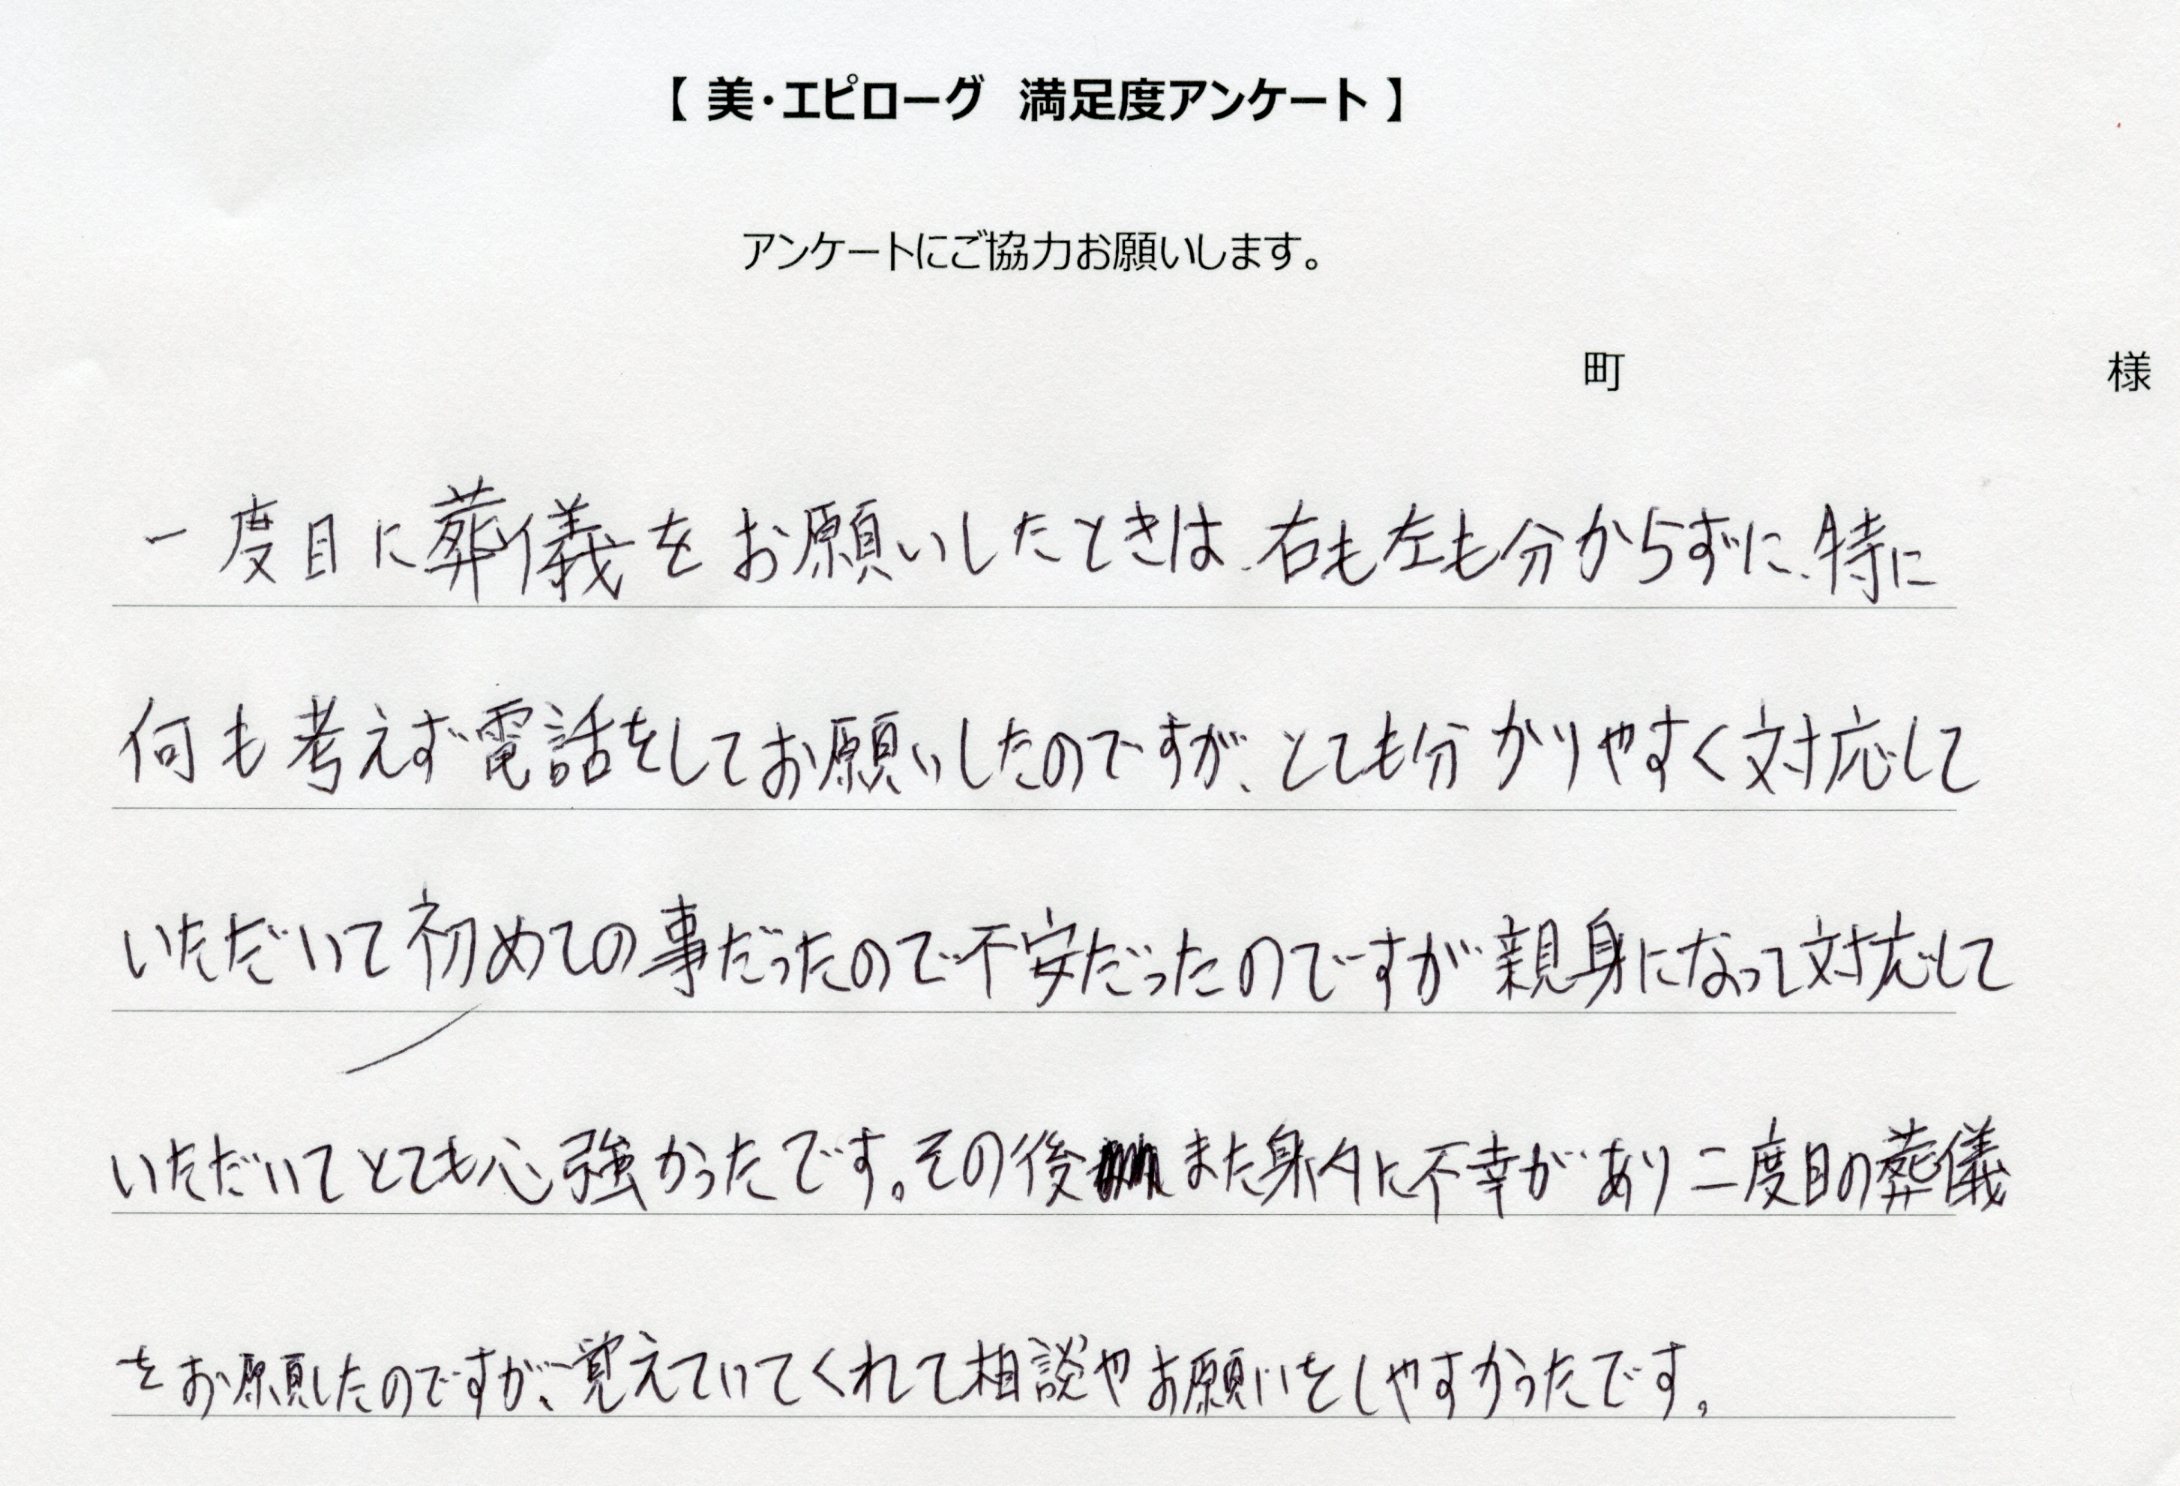 【 美・エピローグ　満足度アンケート 】
アンケートにご協力お願いします。
町　様
一度目に葬儀をお願いしたときは、右も左も分からずに、特に
何も考えず電話をしてお願いしたのですが、とても分かりやすく対応して
いただいて初めての事だったので不安だったのですが親身になって対応して
いただいてとても心強かったです。その後また身内に不幸があり二度目の葬儀
をお願したのですが、覚えていてくれて相談やお願いをしやすかったです。